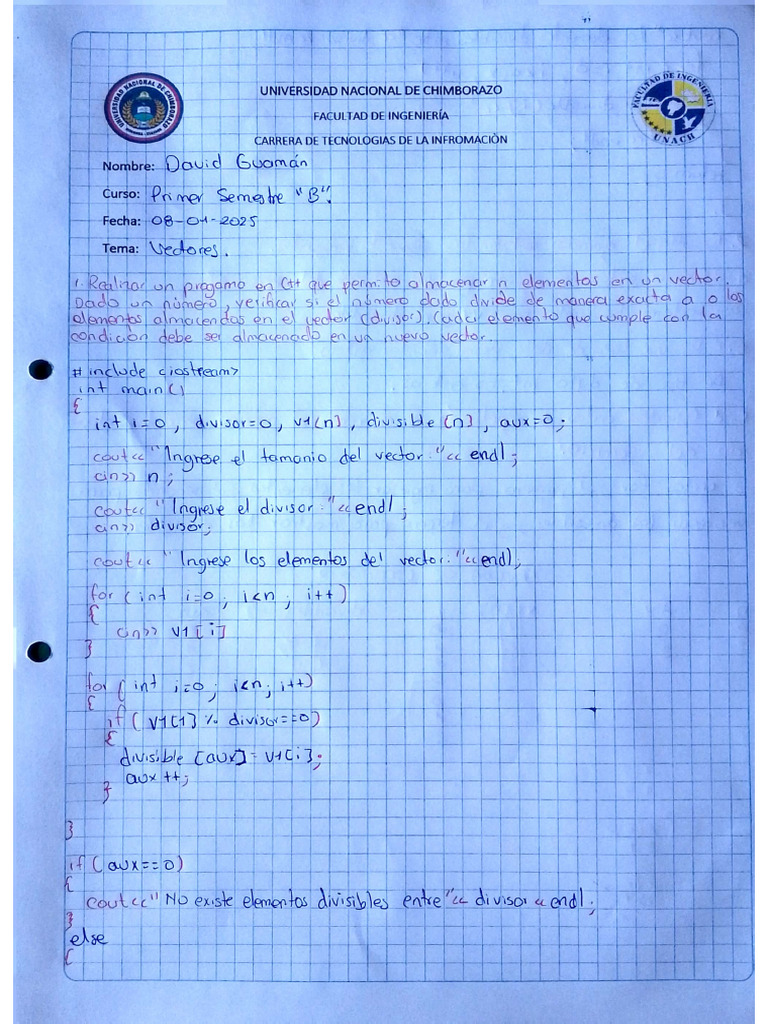 UNIVERSIDAD NACIONAL DE CHIMBORAZO
FACULTAD DE INGENIERÍA
CARRERA DE TECNOLOGIAS DE LA INFROMACIÒN
UNIVERSIDAD NACIONAL DE CHIMBORAZO
FACULTAD DE INGENIERIA
UNACH
Nombre: David Guamán
Curso: Primer Semestre "B".
Fecha: 08-01-2025
Tema: Vectores.
1. Realizar un progama en C++ que permita almacenar n elementos en un vector.
Dado un número, verificar si el número dado divide de manera exacta a o los
elementos almacendos en el vector (divisor). Cada elemento que cumple con la
condición debe ser almacenado en un nuevo vector.
#include <iostream>
int main()
{
int i=0, divisor=0, v1[n], divisible[n], aux=0;
cout<<"Ingrese el tamanio del vector:"<<endl;
cin>> n;
cout<<"Ingrese el divisor:"<<endl;
cin>> divisor;
cout<<"Ingrese los elementos del vector:"<<endl;
for(int i=0; i<n; i++)
{
cin>> v1[i]
}
for(int i=0; i<n; i++)
{
if(v1[i] % divisor==0)
{
divisible[aux]=v1[i];
aux++;
}
}
if(aux==0)
{
cout<<"No existe elementos divisibles entre"<< divisor << endl;
}
else
{